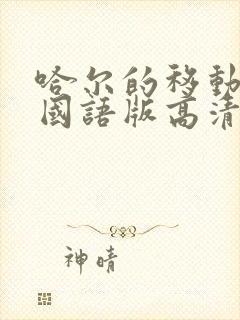 哈尔的移動
國語版高清
神晴